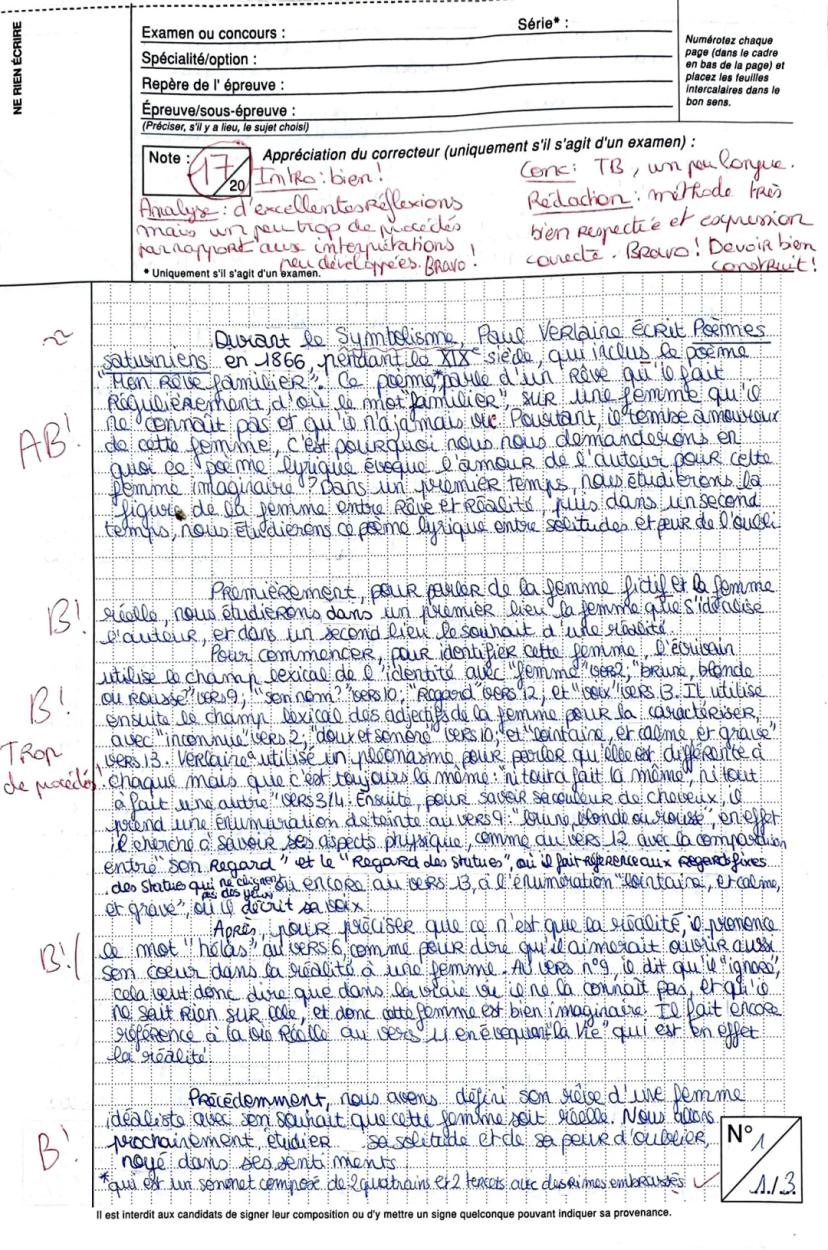 NE RIEN ÉCRIRE
Examen ou concours : Série* :
Spécialité/option :
Repère de l' épreuve :
Épreuve/sous-épreuve :
(Préciser, s'il y a lieu, le sujet choisi)
Numérotez chaque
page (dans le cadre
en bas de la page) et
placez les feuilles
intercalaires dans le
bon sens.
Note : 17/20
Appréciation du correcteur (uniquement s'il s'agit d'un examen) :
Intro : bien !
Analyse : d'excellentes réflexions
mais un peu trop de procédés
par rapport aux interprétations
peu développées. BRAVO !
Conc : TB, un peu longue.
Rédaction : méthode très
bien respectée et expression
correcte. Bravo ! Devoir bien
construit !
* Uniquement s'il s'agit d'un examen.
Durant le Symbolisme, Paul Verlaine écrit Poèmes
saturniens en 1866, pendant le XIXe siècle, qui inclus le poème
"Mon Rêve familier". Ce poème* parle d'un rêve qu'il fait
régulièrement, d'où le mot "familier", sur une femme qu'il
ne connait pas et qu'il n'a jamais vu. Pourtant, il tombe amoureux
AB !
de cette femme, c'est pourquoi nous nous demanderons en
quoi ce poème lyrique évoque l'amour de l'auteur pour cette
femme imaginaire ? Dans un premier temps, nous étudierons la
figure de la femme entre rêve et réalité, puis dans un second
temps, nous étudierons ce poème lyrique entre solitudes et peur de l'oubli
Premièrement, pour parler de la femme fictif et la femme
B !
réelle, nous étudierons dans un premier lieu la femme que s'idéalise
l'auteur, et dans un second lieu le souhait d'une réalité.
Pour commencer, pour identifier cette femme, l'écrivain
utilise le champ lexical de l'identité avec "femme" vers 2; "brune, blonde
B !
ou rousse" vers 9; "son nom?" vers 10; "Regard" vers 12, et "voix" vers 13. Il utilise
ensuite le champ lexical des adjectifs de la femme pour la caractériser,
avec "inconnue" vers 2; "doux et sonore" vers 10, et "lointaine, et calme, et grave"
Trop
de procédés !
vers 13. Verlaine utilise un pléonasme pour parler qu'elle est différente à
chaque mais que c'est toujours la même : "ni tout à fait la même", ni tout
à fait une autre" vers 3/4. Ensuite, pour savoir sa couleur de cheveux, il
prend une énumération de teinte au vers 9 : "brune, blonde ou rousse", en effet
il cherche à savoir ses aspects physique, comme au vers 12 avec la comparaison
entre "son Regard" et le "Regard des statues", où il fait référence aux regards fixes
des statues qui ne clignent pas des yeux ou encore au vers 13, à l'énumération "lointaine, et calme,
et grave", où il décrit sa voix.
Après, pour préciser que ce n'est que la réalité, il prononce
B !
le mot "hélas" au vers 6, comme pour dire qu'il aimerait ouvrir aussi
son coeur dans la réalité à une femme. Au vers n°9, il dit qu'il "ignore",
cela veut donc dire que dans la vraie vie il ne la connaît pas, et qu'il
ne sait rien sur elle, et donc cette femme est bien imaginaire. Il fait encore
référence à la vie réelle au vers 11 en évoquant "la Vie" qui est en effet
la réalité.
Précédemment, nous avons défini son rêve d'une femme
idéaliste avec son souhait que cette femme soit réelle. Nous allons
B !
prochainement étudier sa solitude et de sa peur d'oublier,
noyé dans ses sentiments
*qui est un sonnet composé de 2 quatrains et 2 tercets avec des rimes embrassés
N° 1
1/3
Il est interdit aux candidats de signer leur composition ou d'y mettre un signe quelconque pouvant indiquer sa provenance.